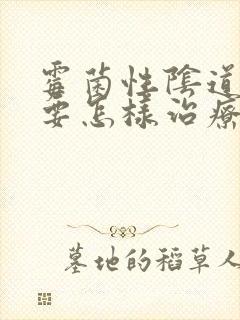 霉菌性陰道
要怎樣治療
墓地的稻草人